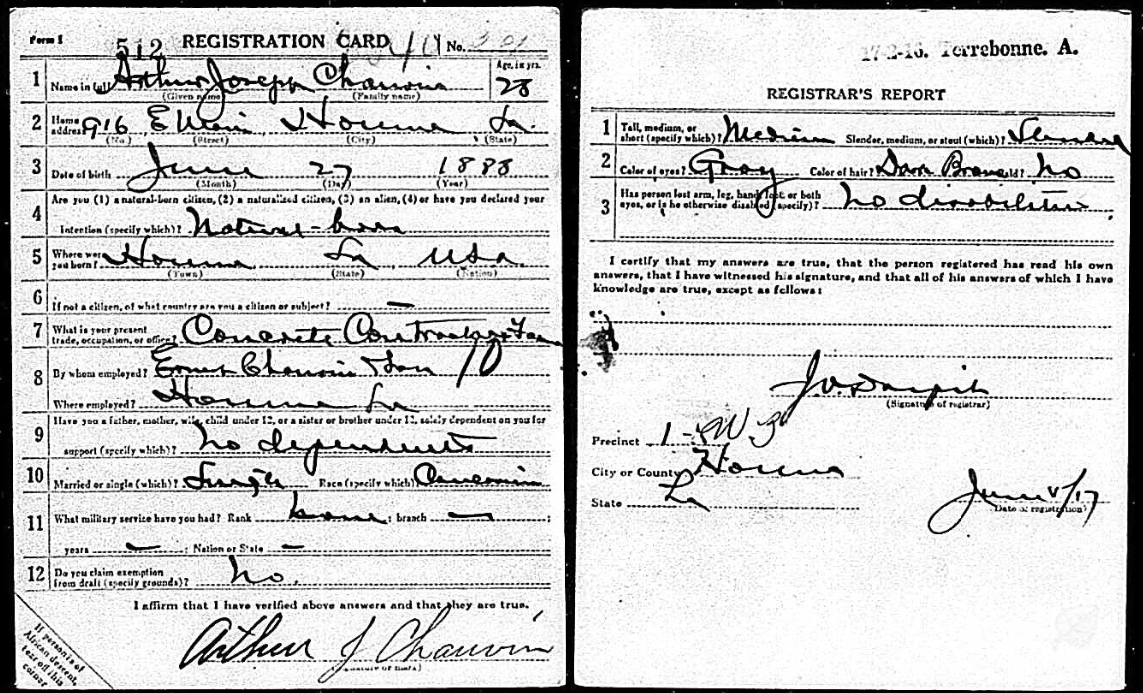 Form 1
512 REGISTRATION CARD No.
1 Name in full Arthur Joseph Chauvin
(Given name) (Family name)
Age, in yrs. 28
2 Home address 916 E Main Houma La.
(No.) (Street) (City) (State)
3 Date of birth June 27 1888
(Month) (Day) (Year)
4 Are you (1) a natural-born citizen, (2) a naturalized citizen, (3) an alien, (4) or have you declared your
intention (specify which)? Natural-born
5 Where were you born? Houma La USA
(Town) (State) (Nation)
6 If not a citizen, of what country are you a citizen or subject? —
7 What is your present trade, occupation, or office? Concrete Contractor
8 By whom employed? Ernest Chauvin & Son 10
Where employed? Houma La
9 Have you a father, mother, wife, child under 12, or a sister or brother under 12, solely dependent on you for
support (specify which)? No dependents
10 Married or single (which)? Single Race (specify which)? Caucasian
11 What military service have you had? Rank none ; branch — ;
years — ; Nation or State —
12 Do you claim exemption from draft (specify grounds)? No.
I affirm that I have verified above answers and that they are true.
Arthur J Chauvin
If person is of African descent, tear off this corner
17-2-16. Terrebonne. A.
REGISTRAR'S REPORT
1 Tall, medium, or short (specify which)? Medium Slender, medium, or stout (which)? Slender
2 Color of eyes? Gray Color of hair? Dark Brown Bald? No
3 Has person lost arm, leg, hand, foot, or both eyes, or is he otherwise disabled (specify)? No disabilities.
I certify that my answers are true, that the person registered has read his own
answers, that I have witnessed his signature, and that all of his answers of which I have
knowledge are true, except as follows:
(Signature of registrar)
Precinct 1 - W 3
City or County Houma
State La
June 5/17
(Date of registration)